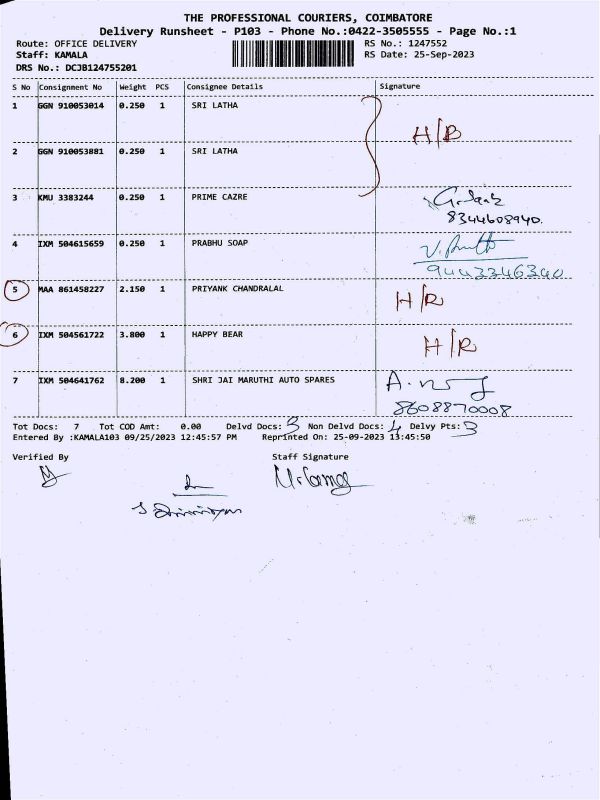 THE PROFESSIONAL COURIERS, COIMBATORE
Delivery Runsheet - P103 - Phone No.:0422-3505555 - Page No.:1
Route: OFFICE DELIVERY RS No.: 1247552
Staff: KAMALA RS Date: 25-Sep-2023
DRS No.: DCJB124755201
S No Consignment No Weight PCS Consignee Details Signature
1 GGN 910053014 0.250 1 SRI LATHA
H/B
2 GGN 910053881 0.250 1 SRI LATHA
3 KMU 3383244 0.250 1 PRIME CAZRE
8344608940.
4 IXM 504615659 0.250 1 PRABHU SOAP
9443346340
5 MAA 861458227 2.150 1 PRIYANK CHANDRALAL H/R
6 IXM 504561722 3.800 1 HAPPY BEAR H/R
7 IXM 504641762 8.200 1 SHRI JAI MARUTHI AUTO SPARES
8608870008
Tot Docs: 7 Tot COD Amt: 0.00 Delvd Docs: 3 Non Delvd Docs: 4 Delvy Pts: 3
Entered By :KAMALA103 09/25/2023 12:45:57 PM Reprinted On: 25-09-2023 13:45:50
Verified By Staff Signature